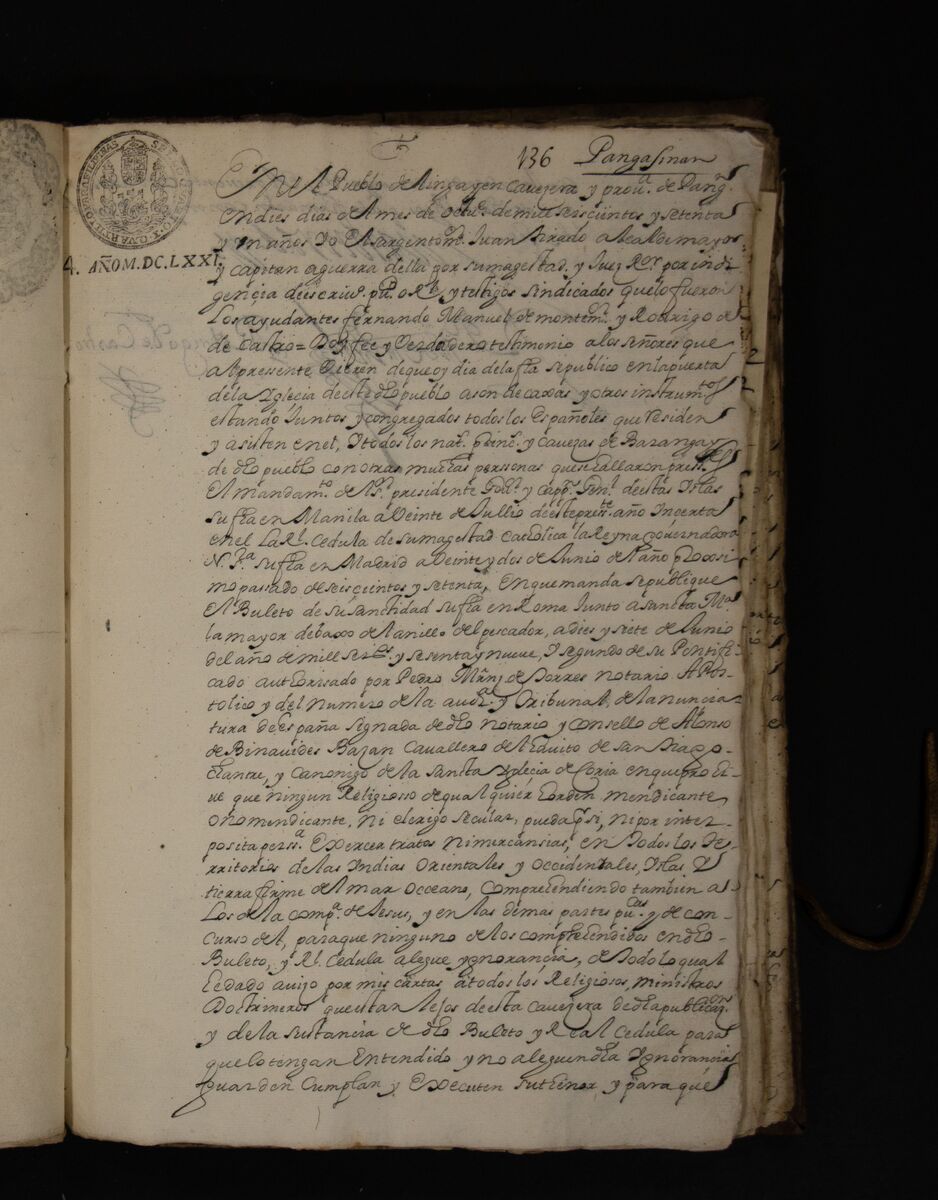 136 Pangasinan
En el Pueblo de Lingayen Cavezera y prova. de Pangn.
En dies dias del mes de Octue. de mill seiscientos y setenta
y un años Yo El sargento mr. Juan Tirado alcalde mayor
4. AÑO M.DC.LXXI.
y capitan a guerra della por su magestad. y Juez Ror. por indi
gencia de escrivo. puo. o Rl. y testigos sindicados que lo fueron
Los ayudantes fernando Manuel de montemr. y Rodrigo de
de Castro = Doy fee y Verdadero testimonio a los señores que
al presente Vieren de que oy dia de la fha se publico en la puerta
de la Yglecia de este dho pueblo a son de caxas y otros instrumtos
estando Juntos y congregados todos los Españoles que Residen
y asisten en el, Y todos los nats. princs. y cavezas de Barangay
de dho pueblo con otras muchas personas que se hallaron press.
El mandamto. del Sr. presidente Govr. y Cappn. Genl. de estas Yslas
su fha en Manila a Veinte de Jullio de este preste. año Incerta
en el La Rl. Cedula de su magestad catholica la Reyna governadora
N. Sra. su fha en Madrid a Veinte y dos de Junio del año proxsi
mo passado de seiscientos y setenta, En que manda se publique
El Buleto de su santidad su fha en Roma Junto a sancta Ma.
la mayor debaxo del anillo del pescador, a dies y siete de Junio
del año de mill seiscs. y sesenta y nueve, Y segundo de su Pontifi-
cado authorisado por Pedro Mrnz. de Torres notario Apos-
tolico y del numero de la auda. y Tribunal, de la nuncia-
tura de España signada de dho notario y con sello de Alonso
de Binavides Bazan Cavallero del havito de san Diago-
chantre, y Canonigo de la sancta Yglecia de Coria en que prohi-
ve que ningun Religiosso de qual quier horden mendicante
o no mendicante, ni clerigo secular, pueda pr. si, ni por inter-
posita perssa. Exercer tratos ni mercansias, en todos los Te-
rritorios de las Indias Orientales y Occidentales, Yslas Y
tierra firme del mar Occeano, comprehendiendo tambien a
Los de la compa. de Jesus, y en las demas partes pucas. y de con-
curso del, para que ninguno de los comprehendidos en dho
Buleto, y Rl. Cedula alegue ygnorancia, de todo lo qual
he dado avizo por mis cartas a todos los Religiosos, ministros
Doctrineros que estan lejos de esta cavezera de dha publicaon.
y de la sustancia de dho Buleto y Real Cedula para
que lo tengan Entendido y no aleguen della Ygnorancia
Guarden Cumplan y Executen su thenor, y para que